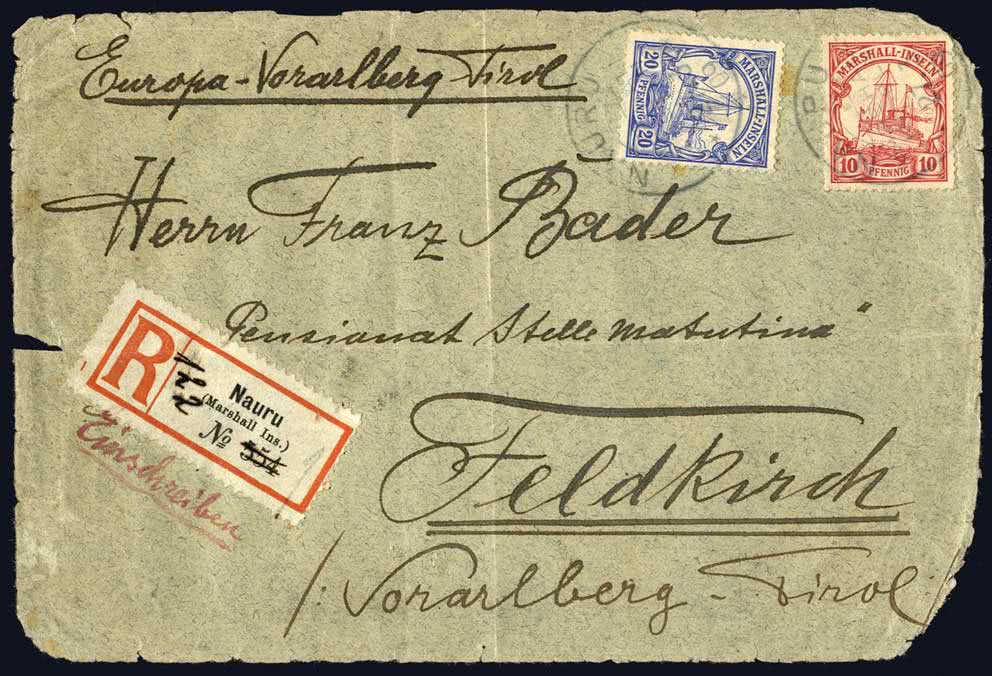 Europa-Vorarlberg-Tirol
MARSHALL-INSELN
20 PFENNIG 20
MARSHALL-INSELN
10 PFENNIG 10
NAURU
Herrn Franz Bader
"Pensionat Stella matutina"
R
Nauru
(Marshall Ins.)
№ 554
Einschreiben
Feldkirch
/: Vorarlberg - Tirol :